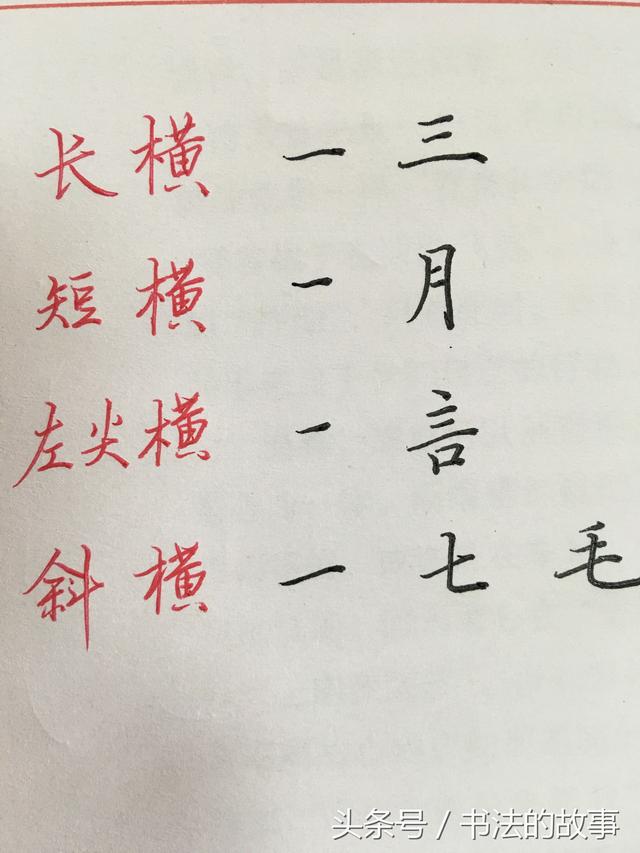 长横 一 三
短横 一 月
左尖横 一 言
斜横 一 七 毛
头条号 / 书法的故事